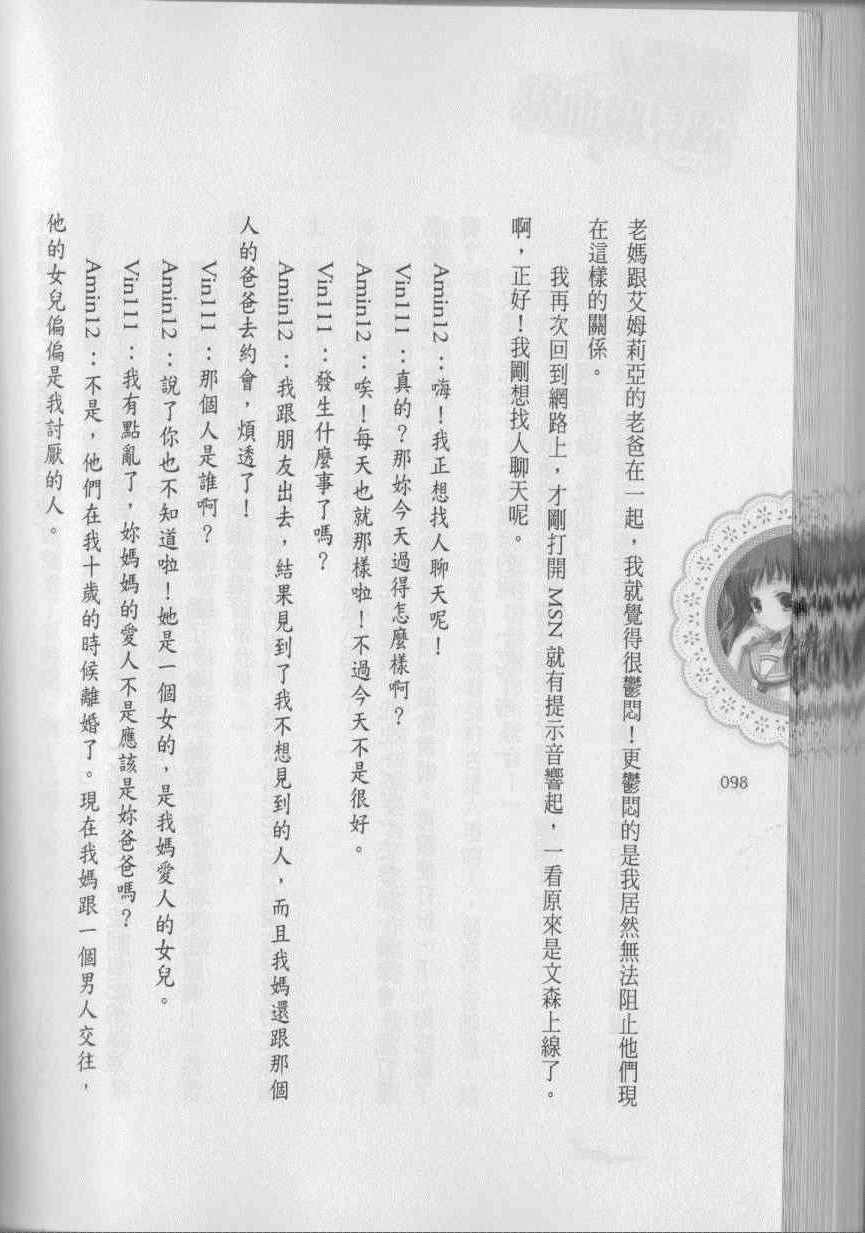 老媽跟艾姆莉亞的老爸在一起，我就覺得很鬱悶！更鬱悶的是我居然無法阻止他們現
在這樣的關係。
我再次回到網路上，才剛打開 MSN 就有提示音響起，一看原來是文森上線了。
啊，正好！我剛想找人聊天呢。
Amin12：嗨！我正想找人聊天呢！
Vin111：真的？那妳今天過得怎麼樣啊？
Amin12：唉！每天也就那樣啦！不過今天不是很好。
Vin111：發生什麼事了嗎？
Amin12：我跟朋友出去，結果見到了我不想見到的人，而且我媽還跟那個
人的爸爸去約會，煩透了！
Vin111：那個人是誰啊？
Amin12：說了你也不知道啦！她是一個女的，是我媽愛人的女兒。
Vin111：我有點亂了，妳媽媽的愛人不是應該是妳爸爸嗎？
Amin12：不是，他們在我十歲的時候離婚了。現在我媽跟一個男人交往，
他的女兒偏偏是我討厭的人。
098